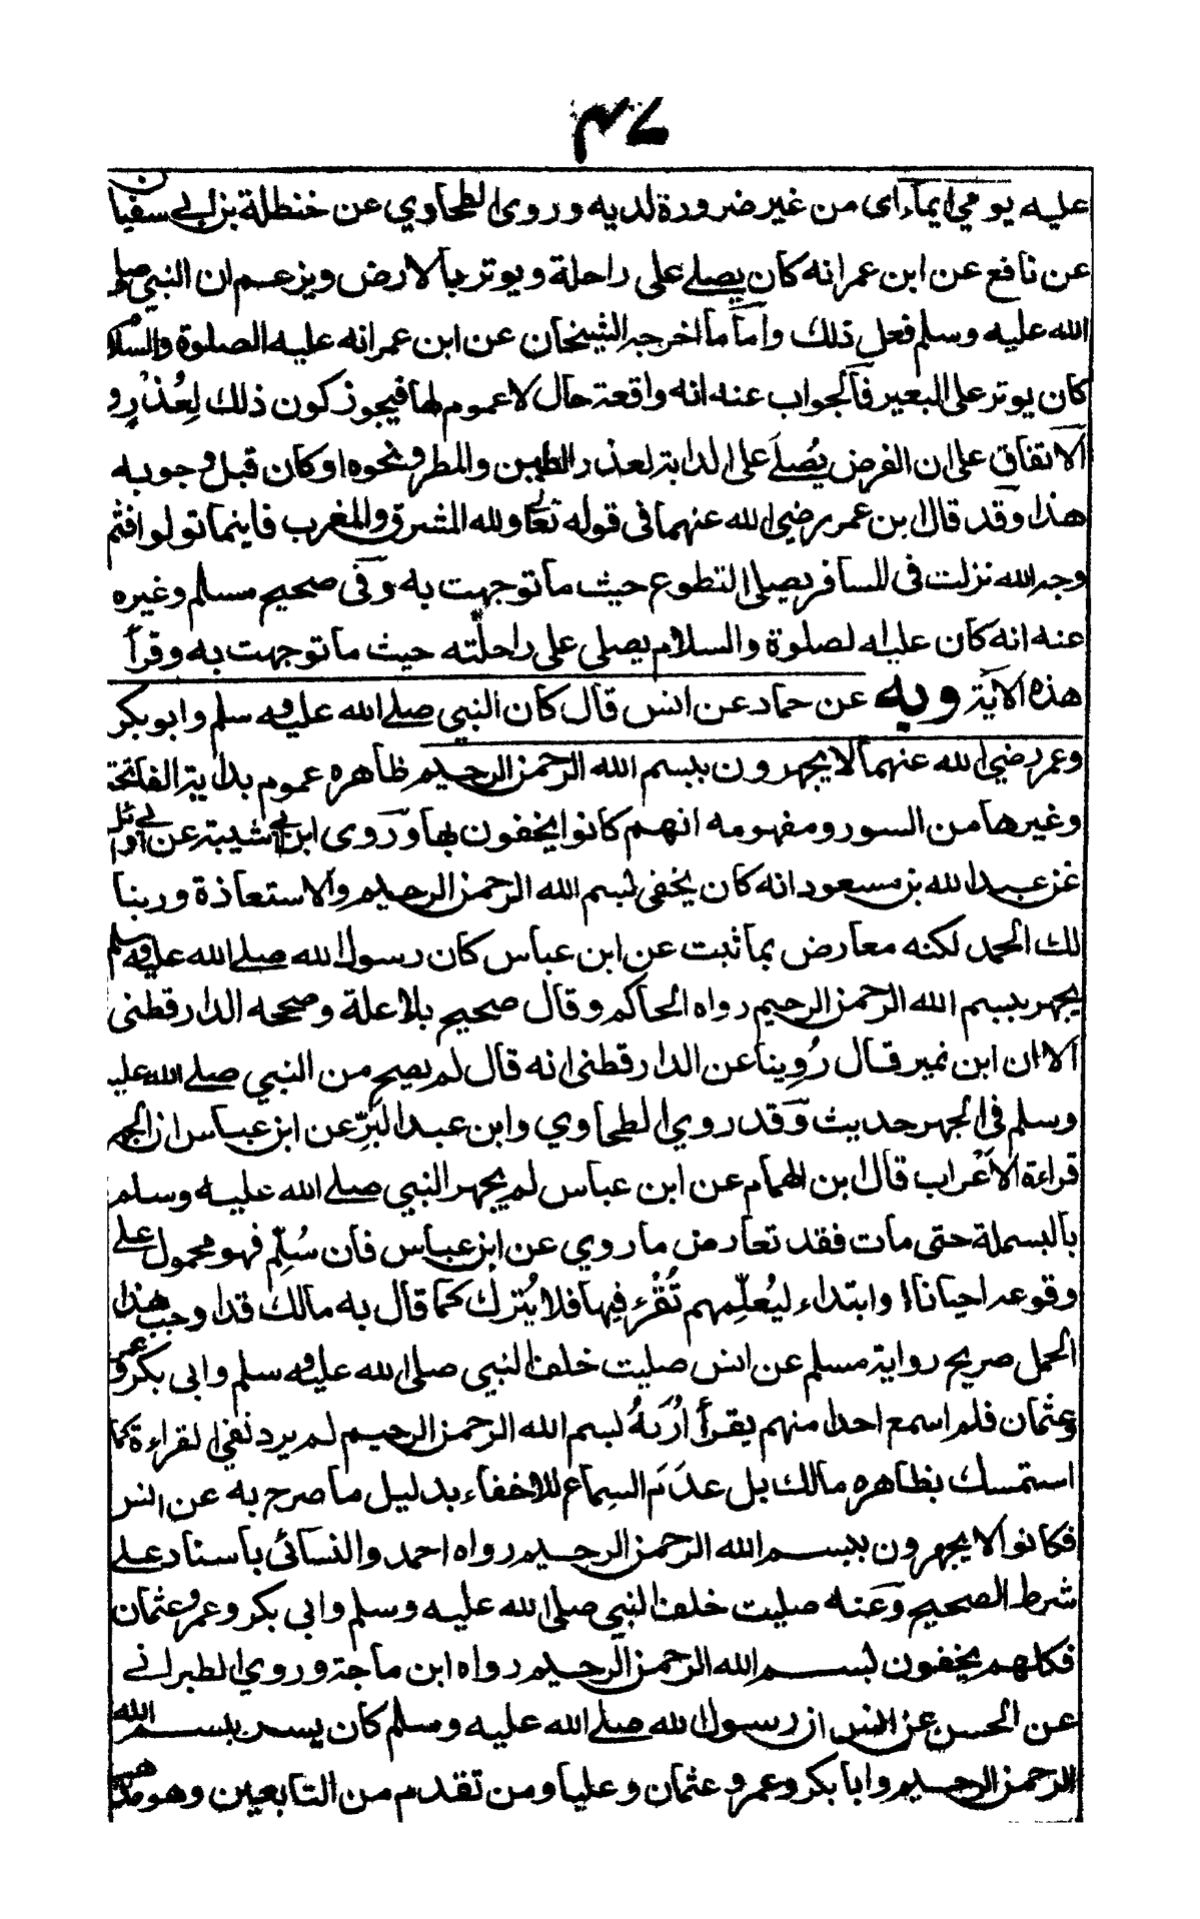 ٤٧
عليه يومي ايماء اى من غير ضرورة لديه وروى الطحاوي عن خنطلة بن ابي سفيان
عن نافع عن ابن عمر انه كان يصلے على راحلة ويوتر بالارض ويزعم ان النبي صلے
الله عليه وسلم فعل ذلك واما ما اخرجه الشيخان عن ابن عمر انه عليه الصلوة والسلام
كان يوتر على البعير فالجواب عنه انه واقعة حال لا عموم لها فيجوز كون ذلك لِعُذْرٍ و
الاتفاق على ان الفرض يُصلے على الدابة لعذر الطين والمطر ونحوه او كان قبل وجوبه
هذا وقد قال ابن عمر رضي الله عنهما فى قوله تعالى ولله المشرق والمغرب فاينما تولوا فثم
وجه الله نزلت فى المسافر يصلي التطوع حيث ما توجهت به وفى صحيح مسلم وغيره
عنه انه كان عليه لصلوة والسلام يصلى على راحلته حيث ما توجهت به وقرأ
هذه الاية وبه عن حماد عن انس قال كان النبي صلے الله عليه وسلم وابو بكر
وعمر رضي الله عنهما لا يجهرون ببسم الله الرحمن الرحيم ظاهره عموم بداية الفاتحة
وغيرها من السور ومفهومه انهم كانوا يخفون بها وروى ابن ابي شيبة عن ابي وائل
عن عبد الله بن مسعود انه كان يخفى بسم الله الرحمن الرحيم والاستعاذة وربنا
لك الحمد لكنه معارض بما ثبت عن ابن عباس كان رسول الله صلے الله عليه وسلم
يجهر ببسم الله الرحمن الرحيم رواه الحاكم وقال صحيح بلا علة وصححه الدارقطنى
الا ان ابن نمير قال رُوِينا عن الدارقطنى انه قال لم يصح من النبي صلے الله عليه
وسلم فى الجهر حديث وقد روي الطحاوي وابن عبد البَرِّ عن ابن عباس ان الجهر
قراءة الاَعْراب قال ابن الهمام عن ابن عباس لم يجهر النبي صلے الله عليه وسلم
بالبسملة حتى مات فقد تعارض ما روي عن ابن عباس فان سُلِّم فهو محمول على
وقوعه احيانا او ابتداء ليُعلِّمهم تُقْرَء فيها فلا يُترك كما قال به مالك قد اوجب هذا
الحمل صريح رواية مسلم عن انس صليت خلف النبي صلى الله عليه وسلم وابى بكر وعمر
وعثمان فلم اسمع احدا منهم يقرأ اُرَبهُ بسم الله الرحمن الرحيم لم يرد نفي القراءة كما
استمسك بظاهره مالك بل عدَمَ السماع للاخفاء بدليل ما صرح به عن انس
فكانوا لا يجهرون ببسم الله الرحمن الرحيم رواه احمد والنسائى باسناد على
شرط الصحيح وعنه صليت خلف النبي صلى الله عليه وسلم وابى بكر وعمر وعثمان
فكلهم يخفون بسم الله الرحمن الرحيم رواه ابن ماجة وروي الطبرانے
عن الحسن عن انس ان رسول الله صلے الله عليه وسلم كان يسر ببسم الله
الرحمن الرحيم وابا بكر وعمر و عثمان وعليا ومن تقدم من التابعين وهو مذهب